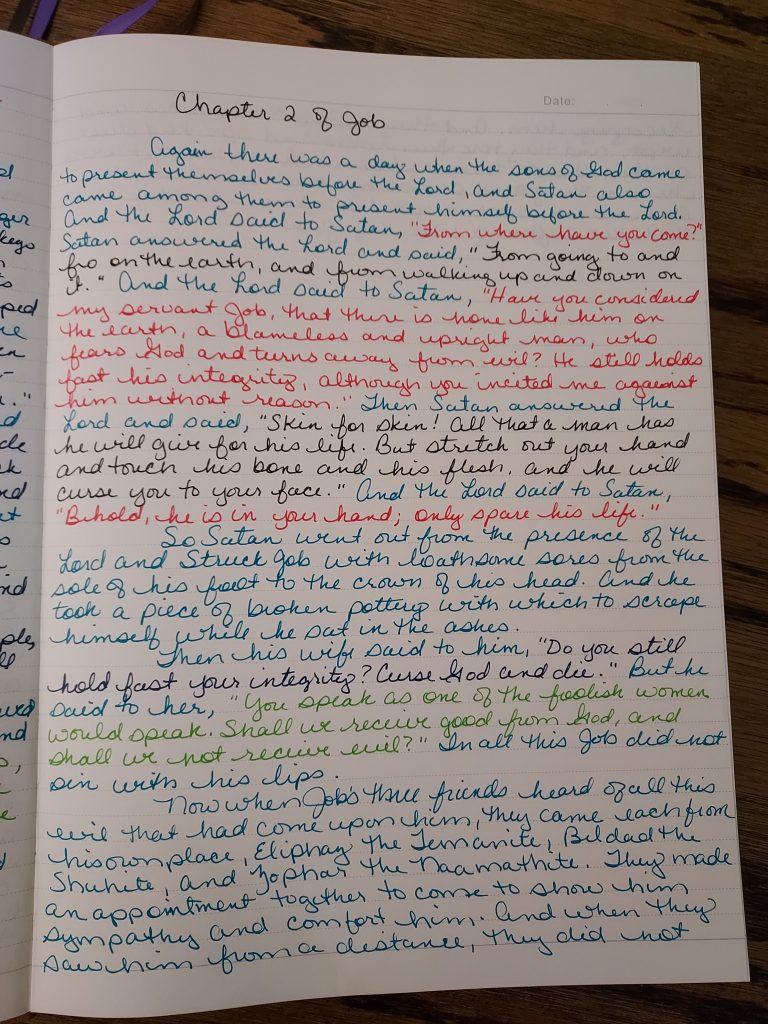 Date:
Chapter 2 of Job
Again there was a day when the sons of God came
to present themselves before the Lord, and Satan also
came among them to present himself before the Lord.
And the Lord said to Satan, "From where have you come?"
Satan answered the Lord and said, "From going to and
fro on the earth, and from walking up and down on
it." And the Lord said to Satan, "Have you considered
my servant Job, that there is none like him on
the earth, a blameless and upright man, who
fears God and turns away from evil? He still holds
fast his integrity, although you incited me against
him without reason." Then Satan answered the
Lord and said, "Skin for skin! All that a man has
he will give for his life. But stretch out your hand
and touch his bone and his flesh, and he will
curse you to your face." And the Lord said to Satan,
"Behold, he is in your hand; only spare his life."
So Satan went out from the presence of the
Lord and Struck Job with loathsome sores from the
sole of his foot to the crown of his head. And he
took a piece of broken pottery with which to scrape
himself while he sat in the ashes.
Then his wife said to him, "Do you still
hold fast your integrity? Curse God and die." But he
said to her, "You speak as one of the foolish women
would speak. Shall we receive good from God, and
shall we not receive evil?" In all this Job did not
sin with his lips.
Now when Job's three friends heard of all this
evil that had come upon him, they came each from
his own place, Eliphaz the Temanite, Bildad the
Shuhite, and Zophar the Naamathite. They made
an appointment together to come to show him
sympathy and comfort him. And when they
saw him from a distance, they did not